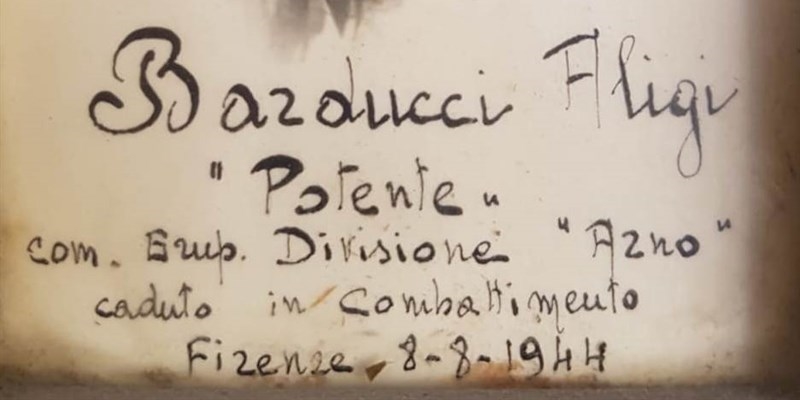 Barducci Aligi
"Potente"
com. Grup. Divisione "Arno"
caduto in Combattimento
Firenze 8-8-1944